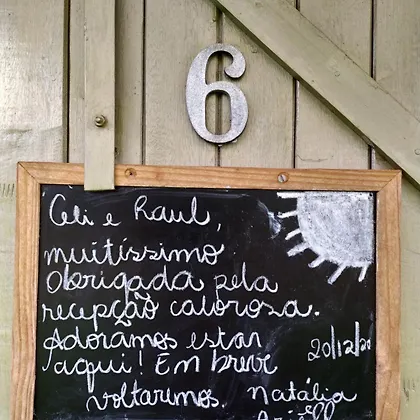 6
Celi e Raul,
muitíssimo
obrigada pela
recepção calorosa.
Adorámos estar
aqui! Em breve
voltaremos.
20/12/20
Natália